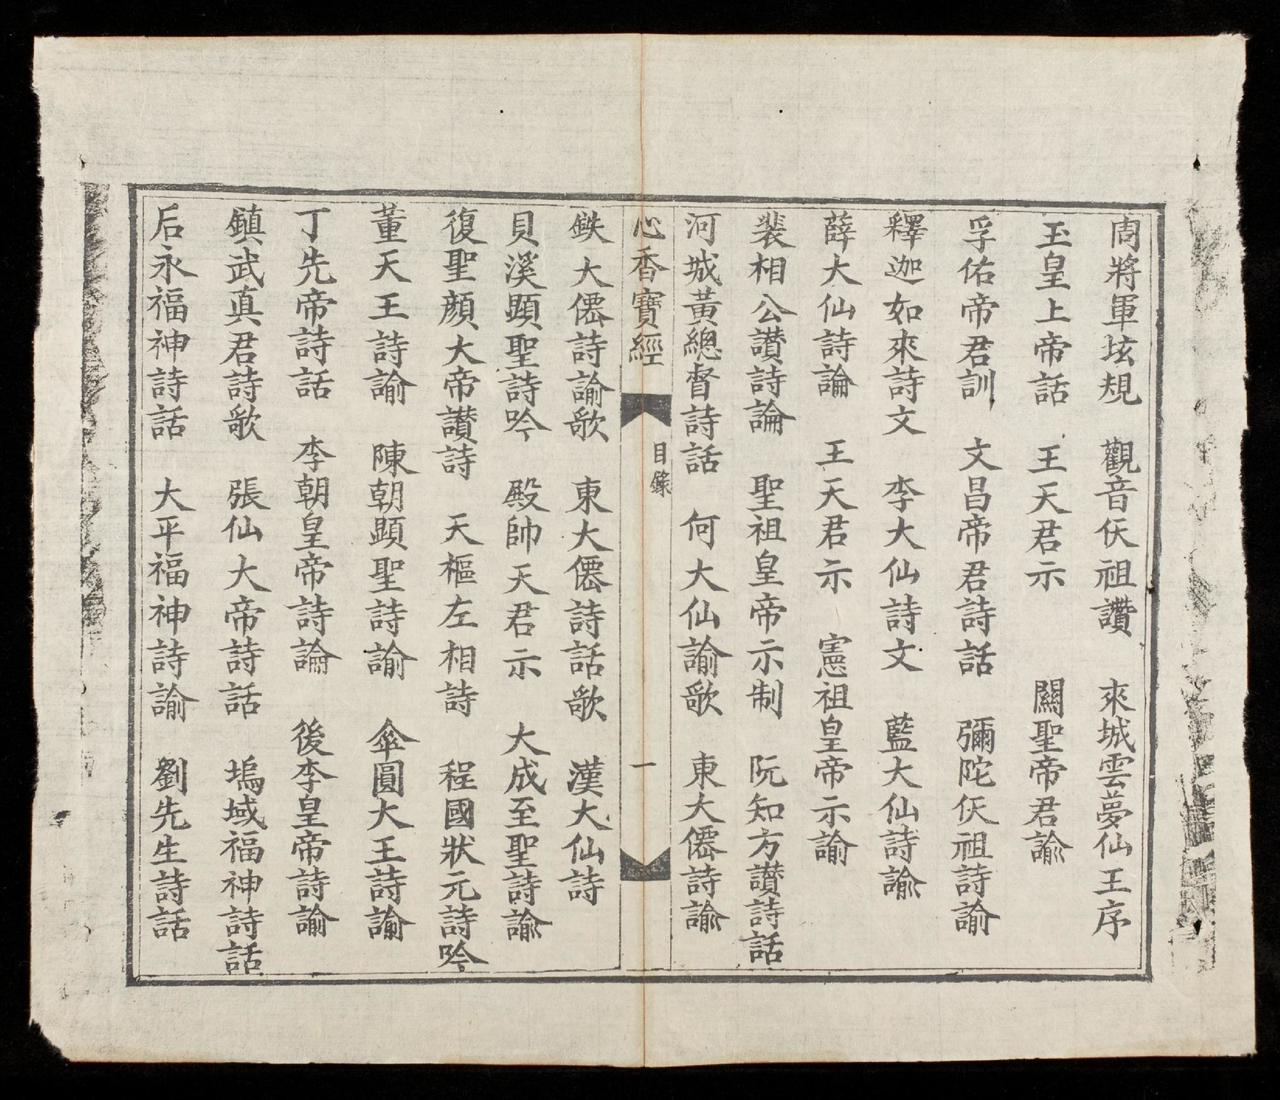 周將軍垓規　觀音仸祖讚　來城雲夢仙王序
玉皇上帝話　王天君示　關聖帝君諭
孚佑帝君訓　文昌帝君詩話　彌陀仸祖詩諭
釋迦如來詩文　李大仙詩文　藍大仙詩諭
薛大仙詩論　王天君示　憲祖皇帝示諭
裴相公讚詩論　聖祖皇帝示制　阮知方讚詩話
河城黃總督詩話　何大仙諭歌　東大僊詩諭
心香寶經　目錄　一
鉄大僊詩諭歌　東大僊詩話歌　漢大仙詩
貝溪顕聖詩吟　殿帥天君示　大成至聖詩諭
復聖顔大帝讚詩　天樞左相詩　程國狀元詩吟
董天王詩諭　陳朝顕聖詩諭　傘圓大王詩諭
丁先帝詩話　李朝皇帝詩論　後李皇帝詩諭
鎮武真君詩歌　張仙大帝詩話　塢域福神詩話
后永福神詩話　大平福神詩諭　劉先生詩話